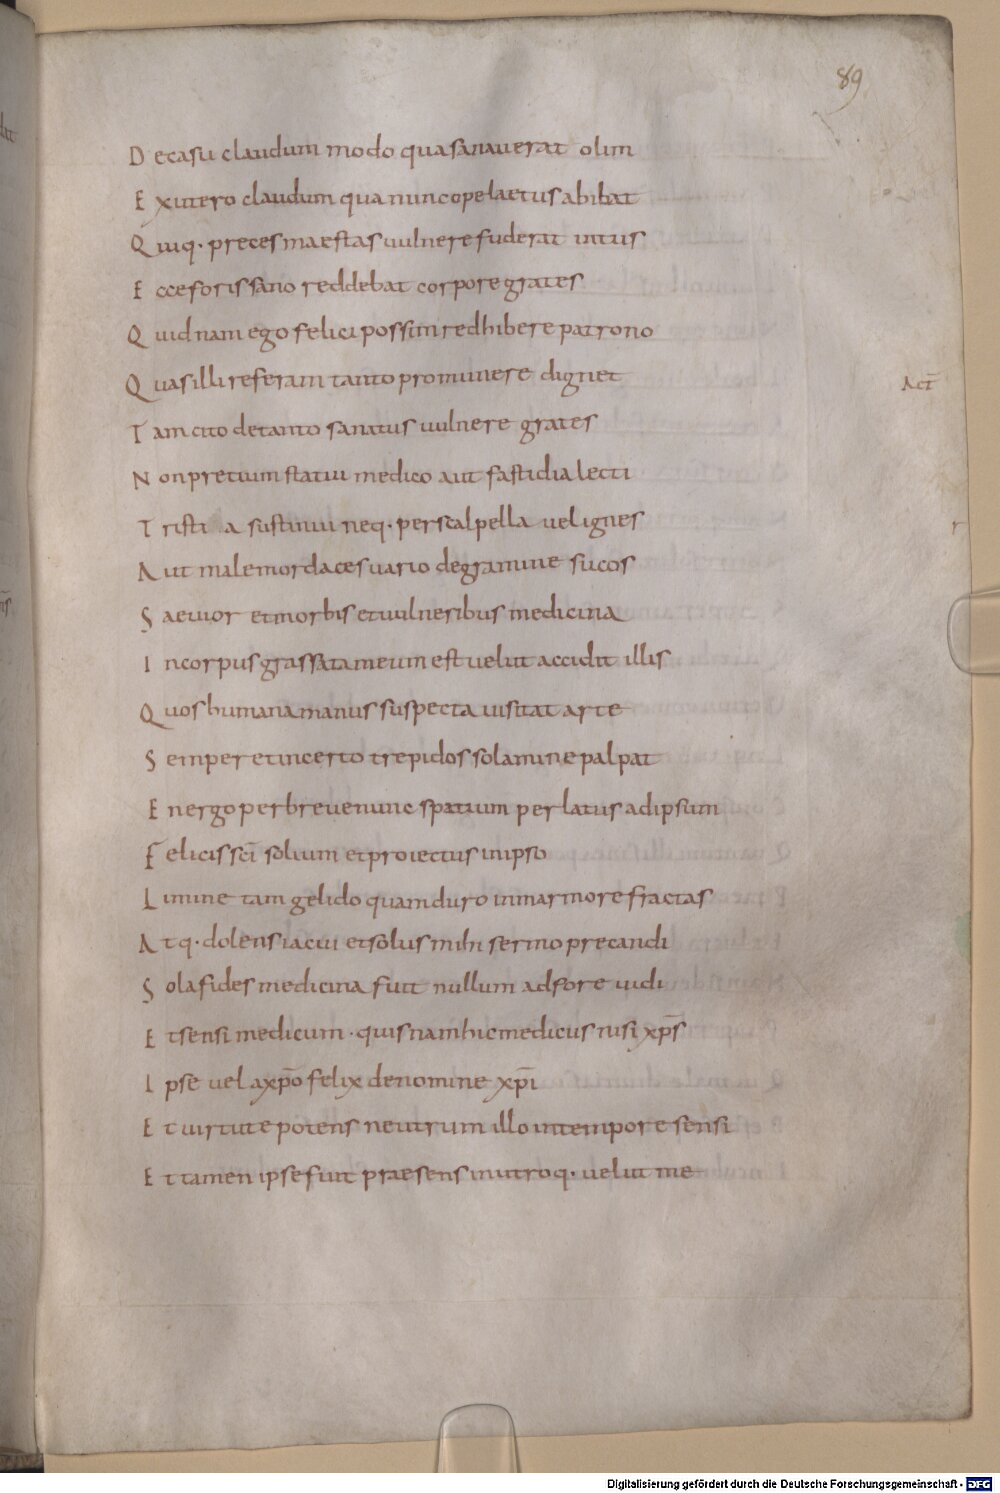 89
De casu claudum modo qua sanauerat olim
Ex utero claudum qua nunc ope laetus abibat
Quiq· preces maestas uulnere fuderat intus
Ecce foris sano reddebat corpore grates
Quidnam ego felici possim redhibere patrono
Quas illi referam tanto pro munere dignet
Act̄
Tam cito de tanto sanatus uulnere grates
Non pretium statui medico aut fastidia lecti
Tristi a sustinui neq· per scalpella uel ignes
Aut male mordaces uario de gramine sucos
Saeuior et morbis et uulneribus medicina
In corpus grassata meum est uelut accidit illis
Quos humana manus suspecta uisitat arte
Semper et incerto trepidos solamine palpat
En ergo per breue nunc spatium perlatus ad ipsum
Felicis sc̄i solium et proiectus in ipso
Limine tam gelido quam duro in marmore fractas
Atq· dolens iacui et solus mihi sermo precandi
Sola fides medicina fuit nullum adfore uidi
Et sensi medicum · quisnam hic medicus nisi xp̄s
Ipse uel a xp̄o felix de nomine xp̄i
Et uirtute potens neutrum illo in tempore sensi
Et tamen ipse fuit praesens in utroq· uelut me
Digitalisierung gefördert durch die Deutsche Forschungsgemeinschaft - DFG